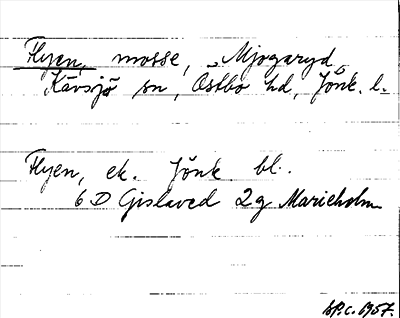 Flyen, mosse, Mjogaryd,
Kävsjö sn, Östbo hd, Jönk. l.
Flyen, ek. Jönk bl.
6 D Gislaved 2g Marieholm
SP.c. 1957.